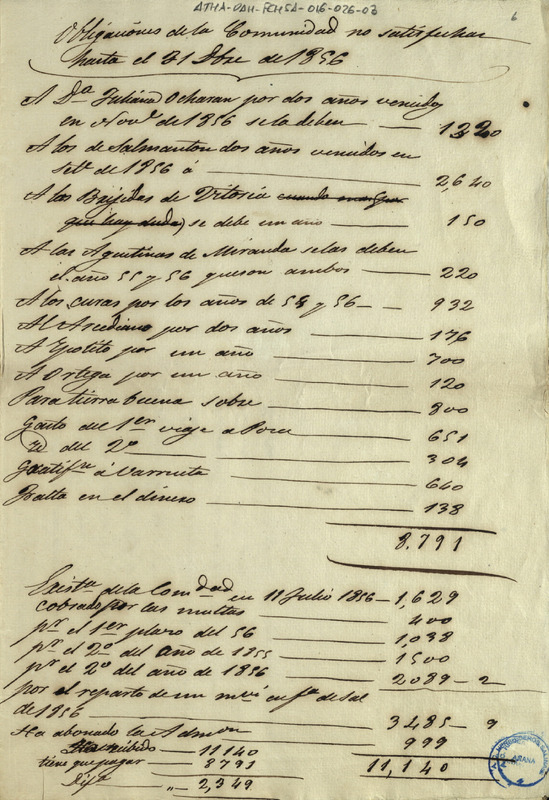 ATHA-DAH-FCHSA-016-026-03
6
Obligaciones de la Comunidad no satisfechas
hasta el 31 Dbre de 1856
A Dª Juliana Ocharan por dos años vencidos
en Novᵉ de 1856 se la deben — 1320
A los de Salmanton dos años vencidos en
Setᵉ de 1856 á — 2,640
A las Brijidas de Vitoria
se debe un año — 150
A las Agustinas de Miranda se las deben
el año 55 y 56 que son ambos — 220
A los curas por los años de 55 y 56 — 932
Al Arcediano por dos años — 176
A Ypolito por un año — 700
A Ortega por un año — 120
Para tierra buena sobre — 800
Gasto del 1er viage a Poza — 651
Yd del 2º — 304
Gratifⁿ á Varruita — 640
Falta en el dinero — 138
8,791
Existª de la Comdad en 11 Julio 1856 — 1,629
cobrado por las multas — 400
pr el 1er plazo del 56 — 1,038
pr el 2º del año de 1855 — 1500
pr el 2º del año de 1856 — 2089 - 2
por el reparto de un en fª de sal
de 1856 — 3485 - 9
Ha abonado la Admon — 999
Ha recibido — 11140
11,140
tiene que pagar — 8791
Difª — 2,349
ARANA